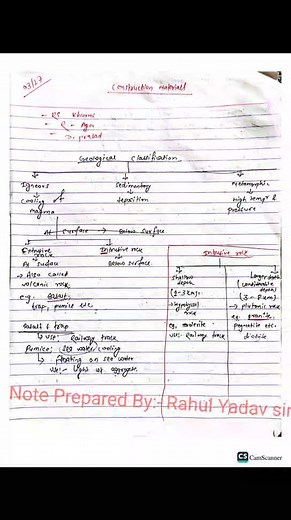 03/27
Construction materials
- RS Khurmi
- R - Agor
- prasad
Geological classification
Igneous
Sedimentary
Metamorphic
Cooling of
magma
Deposition
High tempr &
pressure
At surface → Below surface
Extrusive
rock
Intrusive rock
At surface
Below surface
→ Also called
volcanic rock.
e.g. Basalt,
trap, pumice etc.
Basalt & trap
↳ use: Railway track
Pumice: Sea water cooling
↳ floating on sea water
use:- light wt. aggregate.
Intrusive rock
Shallow
depth
(2-3 km)
→ Hypabyssal
rock
eg. dolerite
use: Railway track
Larger depth
(considerable
depth)
→ plutonic rock
eg. granite,
pegmatite etc.
diorite
Note Prepared By:- Rahul Yadav sir
CS CamScanner